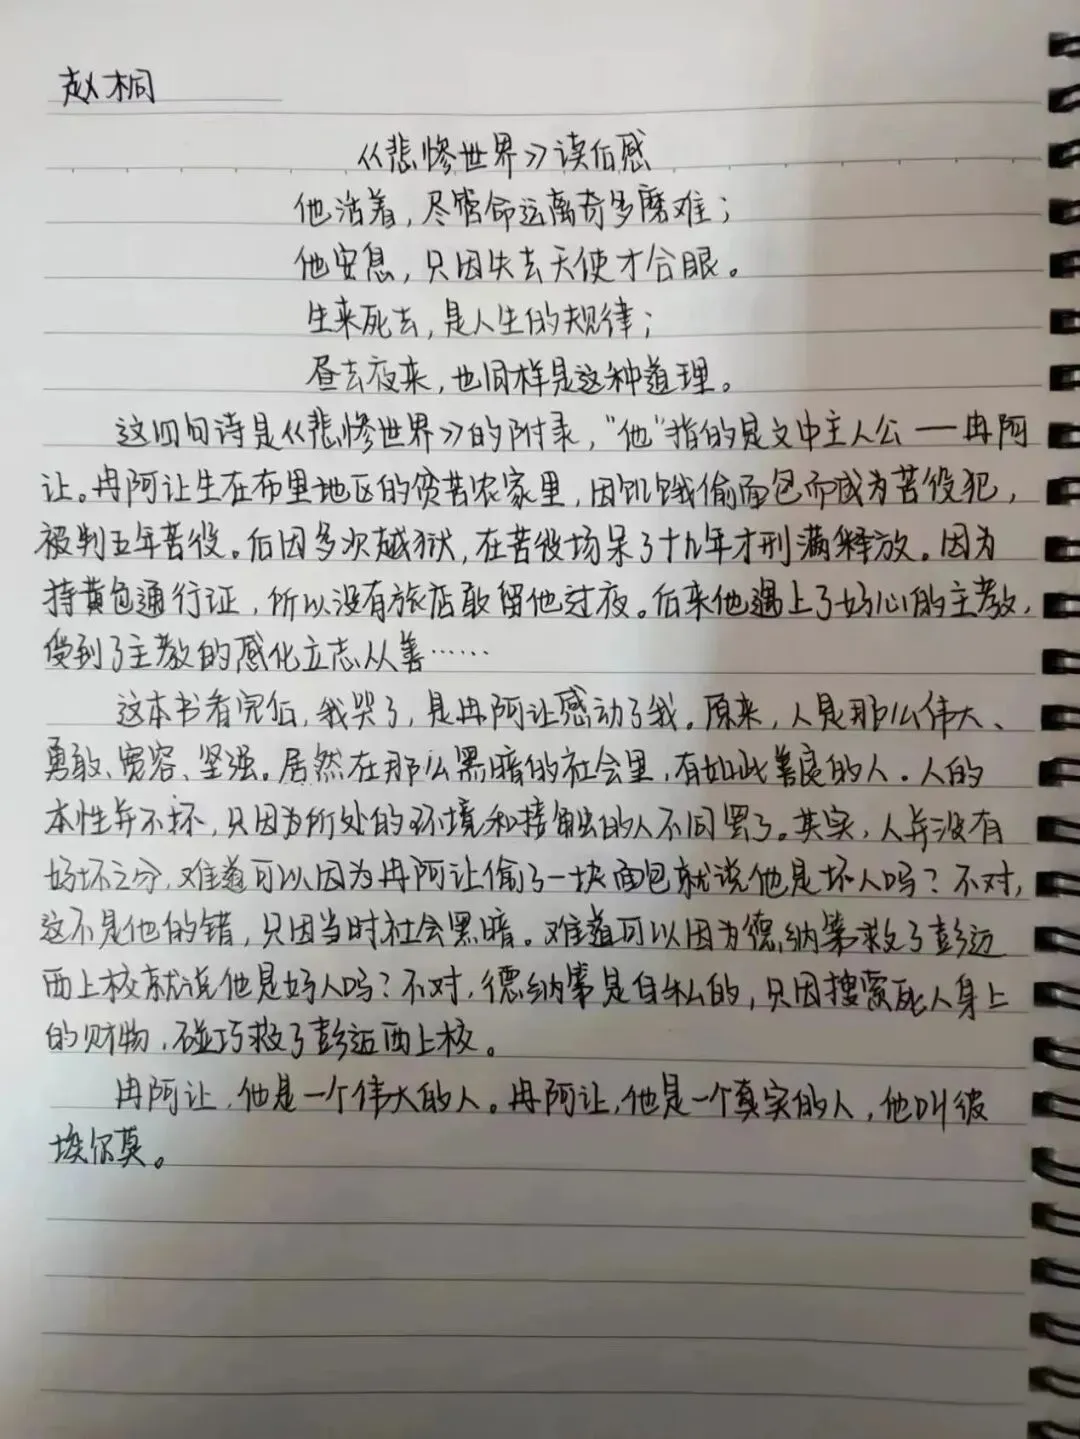 赵桐
《悲惨世界》读后感
他活着，尽管命运离奇多磨难；
他安息，只因失去天使才合眼。
生来死去，是人生的规律；
昼去夜来，也同样是这种道理。
这四句诗是《悲惨世界》的附录，“他”指的是文中主人公一冉阿
让。冉阿让生在布里地区的贫苦农家里，因饥饿偷面包而成为苦役犯，
被判五年苦役。后因多次越狱，在苦役场呆了十九年才刑满释放。因为
持黄色通行证，所以没有旅店敢留他过夜。后来他遇上了好心的主教，
受到了主教的感化立志从善……
这本书看完后，我哭了，是冉阿让感动了我。原来，人是那么伟大、
勇敢、宽容、坚强。居然在那么黑暗的社会里，有如此善良的人。人的
本性并不坏，只因为所处的环境和接触的人不同罢了。其实，人并没有
好坏之分，难道可以因为冉阿让偷了一块面包就说他是坏人吗？不对，
这不是他的错，只因当时社会黑暗。难道可以因为德纳第救了彭迈
西上校就说他是好人吗？不对，德纳第是自私的，只因搜索死人身上
的财物，碰巧救了彭迈西上校。
冉阿让，他是一个伟大的人。冉阿让，他是一个真实的人，他叫彼
埃尔莫。